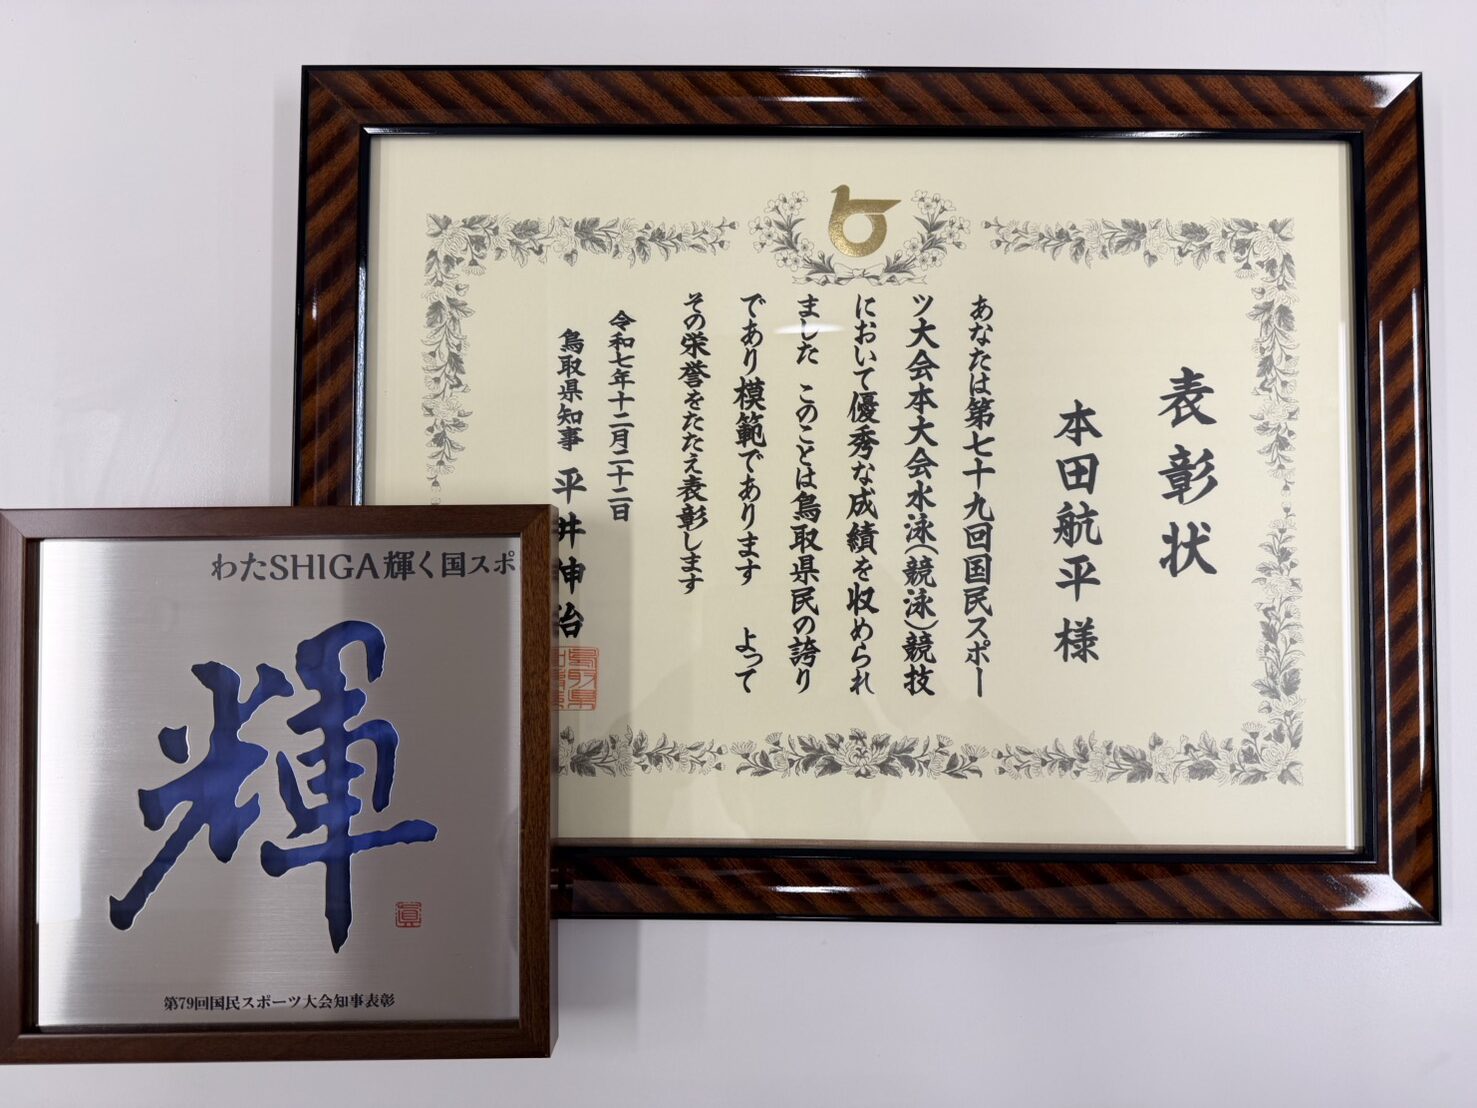 表彰状
本田航平 様
あなたは第七十九回国民スポー
ツ大会本大会水泳(競泳)競技
において優秀な成績を収められ
ました このことは鳥取県民の誇り
であり模範であります よって
その栄誉をたたえ表彰します
令和七年十二月二十二日
鳥取県知事 平井伸治
わたSHIGA輝く国スポ
輝
第79回国民スポーツ大会知事表彰